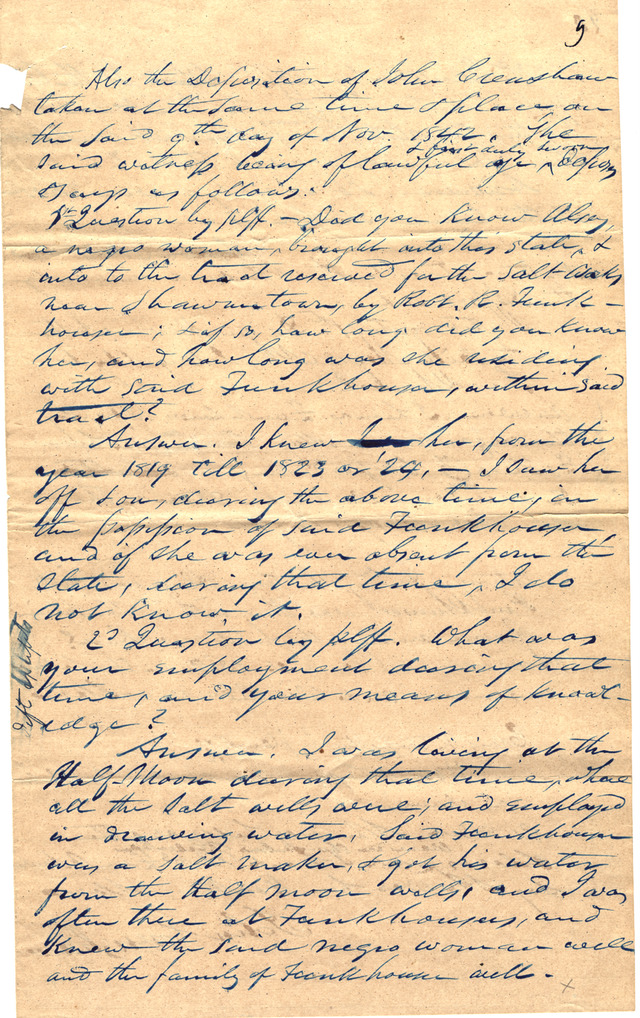 9
Also the Deposition of John Crenshaw
taken at the same time & place, on
the said 9th day of Nov. 1842. The
said witness being of lawful age & first duly sworn deposes
& says as follows:
1st Question by plff. – Did you know Alsey,
a negro woman, brought into this state, &
into to the tract reserved for the Salt Works
near Shawneetown, by Robt. R. Funk-
houser; & if so, how long did you know
her, and how long was she residing
with said Funkhouser, within said
tract?
Answer. I knew her, from the
year 1819 till 1823 or '24, – I saw her
off & on, during the above time, in
the possession of said Funkhouser
and if she was ever absent from the
State, during that time, I do
not know it.
2d Question by plff. What was
your employment during that
time, and your means of know-
ledge?
Answer. I was living at the
Half-Moon during that time, where
all the salt wells were; and employed
in drawing water. Said Funkhouser
was a salt maker, & got his water
from the Half moon wells, and I was
often there at Funkhousers, and
knew the said negro woman well
and the family of Funkhouser well. –
x